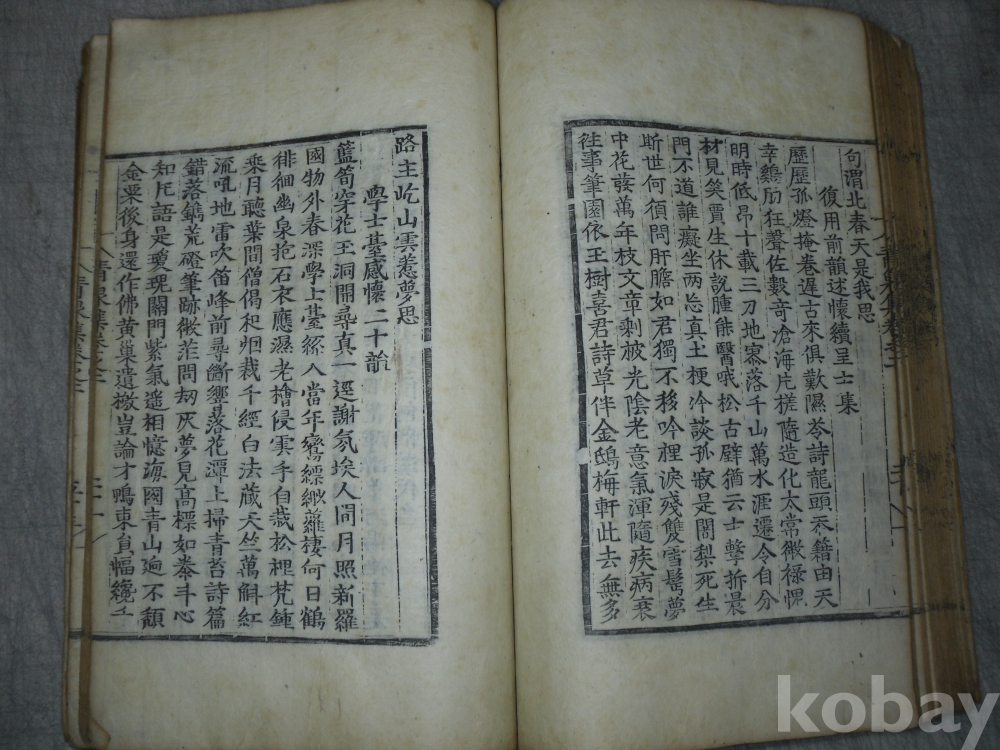 句渭北春天是我思
復用前韻述懷續呈士集
歷歷孤燈掩卷遲古來俱歎隰苓詩龍頭忝籍由天
幸鷄肋狂聲佐數奇滄海片槎隨造化太常微祿愳
明時低昂十載三刀地寥落千山萬水涯遷令自分
材見笑賈生休說腫能醫哦松古壁猶云士擊折晨
門不道誰癡坐兩忘真土梗冷談孤寂是闍梨死生
斯世何須問肝膽如君獨不移吟裡淚殘雙雪鬂夢
中花發萬年枝文章剩被光陰老意氣渾隨疾病衰
往事筆園依王樹喜君詩草伴金鴟梅軒此去無多
路主屹山雲惹夢思
學士臺感懷二十韻
籃筍穿花玉洞開尋真一逕謝氛埃人間月照新羅
國物外春深學士臺綵人當年鸞縹緲蘿棲何日鶴
徘徊幽泉抱石衣應濕老檜侵雲手自栽松裡梵鍾
乘月聽葉間僧偈和烟裁千經白法藏天竺萬斛紅
流吼地雷吹笛峰前尋斷壑落花潭上掃青苔詩篇
錯落鐫荒磴筆跡微茫問劫灰夢見高標如泰斗心
知尾語是瓊瑰關門紫氣遥相憶海國青山逈不頹
金粟後身還作佛黃巢遺檄豈論才鴨東負幅纔千
kobay